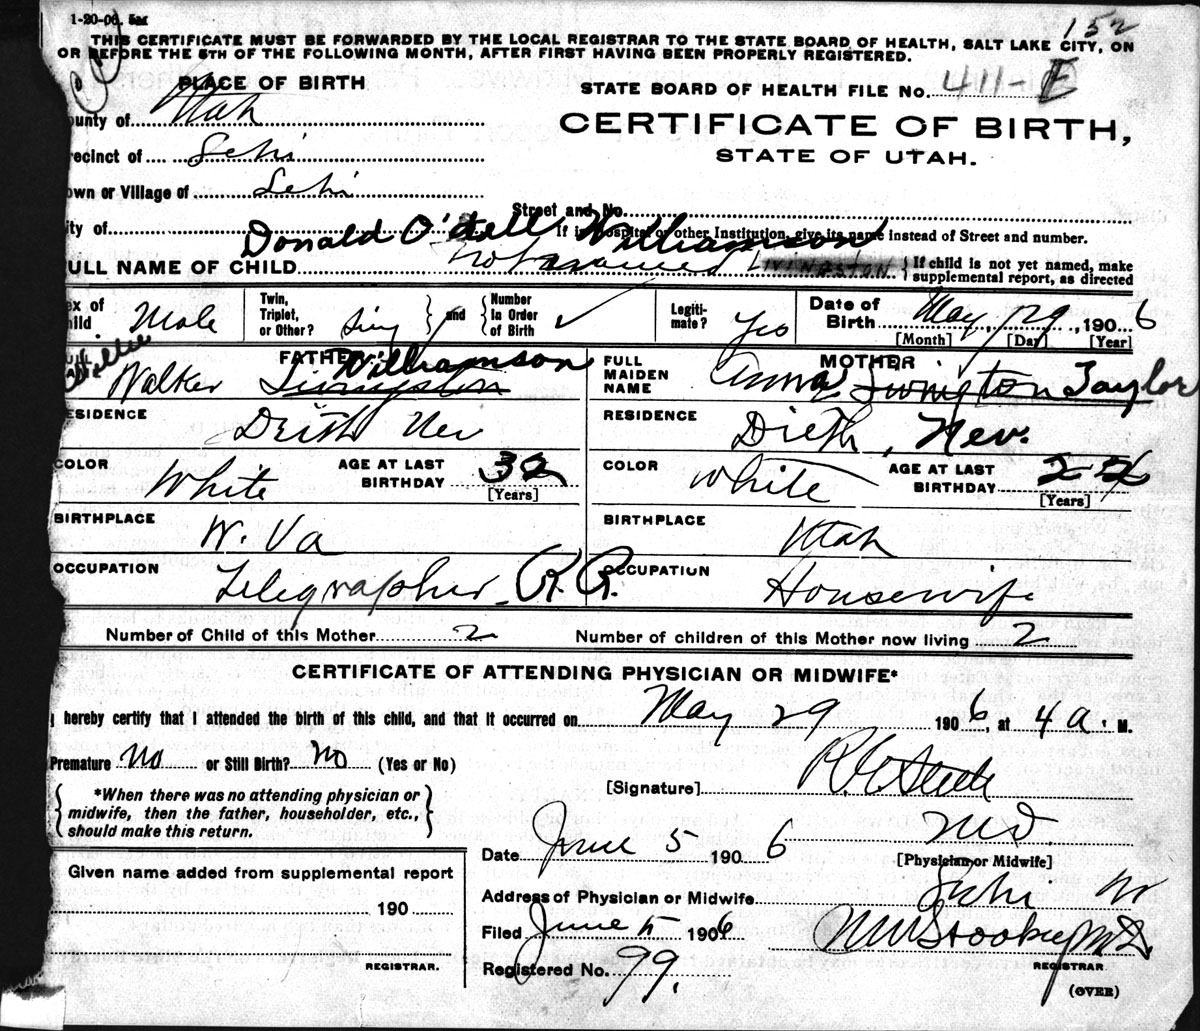 1-20-06. 5M
152
THIS CERTIFICATE MUST BE FORWARDED BY THE LOCAL REGISTRAR TO THE STATE BOARD OF HEALTH, SALT LAKE CITY, ON
OR BEFORE THE 5TH OF THE FOLLOWING MONTH, AFTER FIRST HAVING BEEN PROPERLY REGISTERED.
PLACE OF BIRTH
STATE BOARD OF HEALTH FILE No. 411-E
ounty of Utah
CERTIFICATE OF BIRTH,
STATE OF UTAH.
recinct of Lehi
own or Village of Lehi
Street and No.
ity of
If in hospital or other Institution, give its name instead of Street and number.
Donald O'dell Williamson
ULL NAME OF CHILD not named LIVINGSTON
If child is not yet named, make
supplemental report, as directed
ex of
hild Male
Twin,
Triplet,
or Other?
and
Number
In Order
of Birth ✓
Legiti-
mate? Yes
Date of
Birth May 29, 1906
[Month] [Day] [Year]
FATHER
Williamson
Walker Livingston
RESIDENCE
Nev
COLOR
White
AGE AT LAST
BIRTHDAY 32
[Years]
BIRTHPLACE
W. Va
OCCUPATION
Telegrapher R.R.
MOTHER
FULL
MAIDEN
NAME Anna Livington Taylor
RESIDENCE
Dieth, Nev.
COLOR
White
AGE AT LAST
BIRTHDAY
[Years]
BIRTHPLACE
Utah
OCCUPATION
Housewife
Number of Child of this Mother 2
Number of children of this Mother now living 2
CERTIFICATE OF ATTENDING PHYSICIAN OR MIDWIFE*
I hereby certify that I attended the birth of this child, and that it occurred on May 29 1906, at 4 a. M.
Premature No or Still Birth? No (Yes or No)
*When there was no attending physician or
midwife, then the father, householder, etc.,
should make this return.
[Signature] R. E. Steele
M.D.
[Physician or Midwife]
Date June 5 1906
Given name added from supplemental report
190
REGISTRAR.
Address of Physician or Midwife Lehi
Filed June 5 1906
REGISTRAR
Registered No. 99.
(OVER)